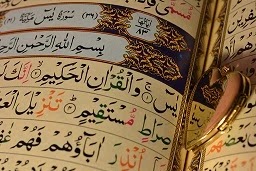 (٣٦) سورة يس مكية
٨٣
بِسْمِ اللَّهِ الرَّحْمَٰنِ الرَّحِيمِ
يس ۝ وَالْقُرْآنِ الْحَكِيمِ ۝ إِنَّكَ
صِرَاطٍ مُّسْتَقِيمٍ ۝ تَنزِيلَ الْعَ
أُنذِرَ آبَاؤُهُمْ فَهُمْ غَٰفِ